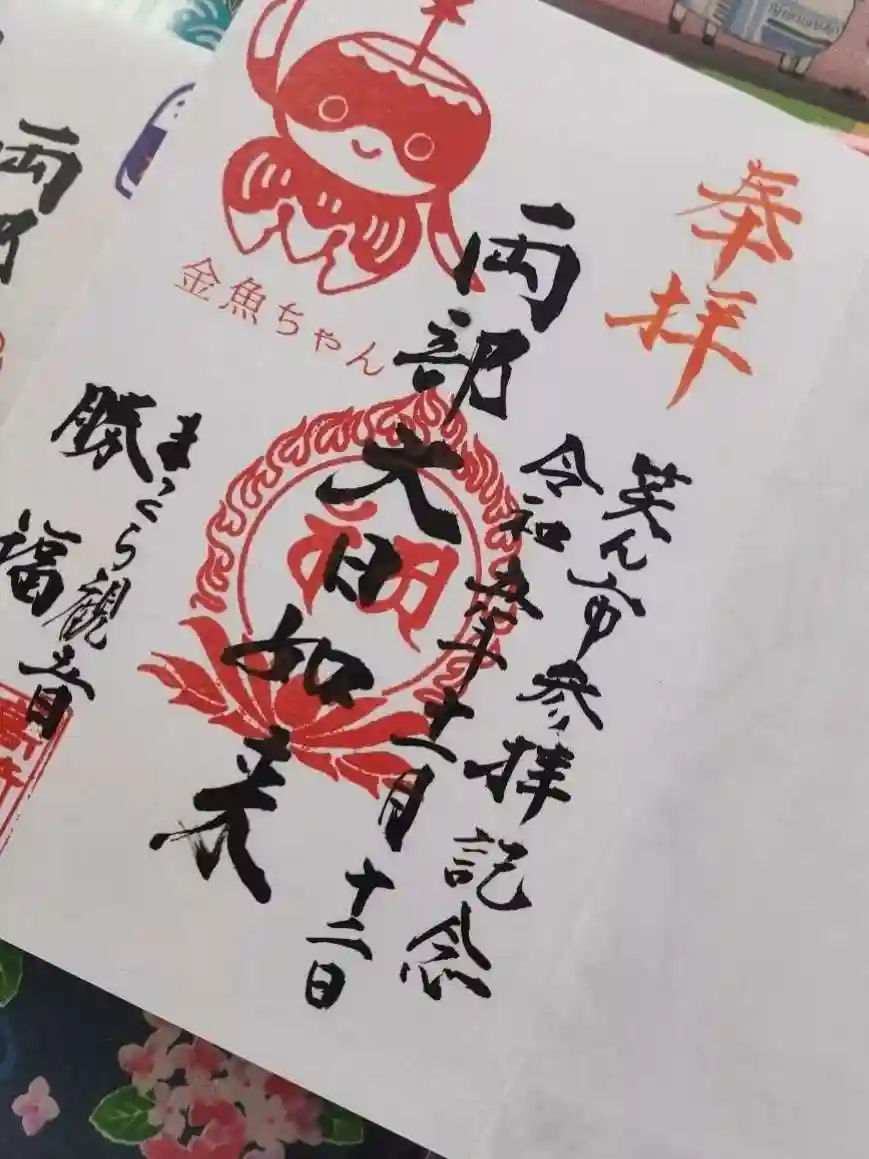 奉拝
笑ん市参拝記念
令和五年十一月十二日
両部大日如来
金魚ちゃん
まくら観音
勝福
両部